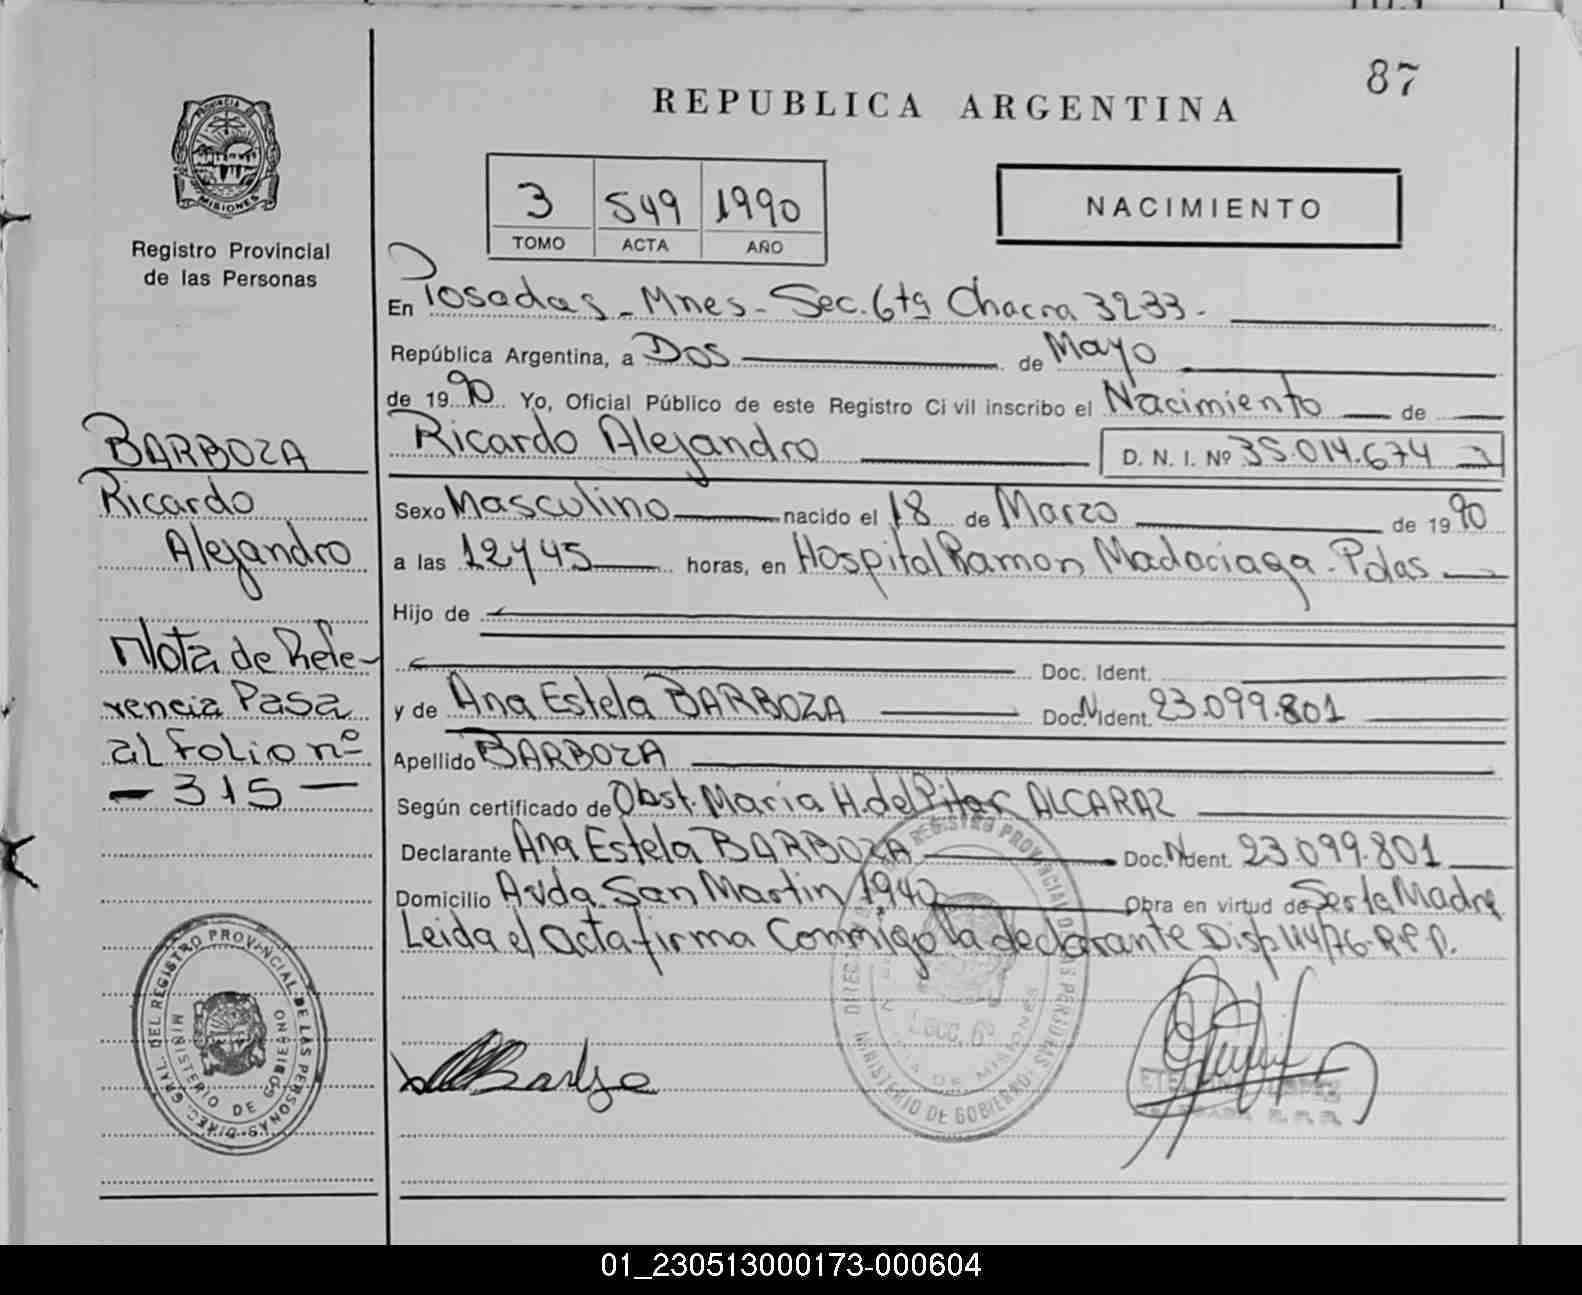 87
REPUBLICA ARGENTINA
PROVINCIA DE
MISIONES
Registro Provincial
de las Personas
3 549 1990
TOMO ACTA AÑO
NACIMIENTO
En Posadas - Mnes - Sec. 6ta Chacra 3233.
República Argentina, a Dos de Mayo
de 1990 Yo, Oficial Público de este Registro Civil inscribo el Nacimiento de
Ricardo Alejandro D. N. I. Nº 35.014.674
Sexo Masculino nacido el 18 de Marzo de 1990
a las 12y45 horas, en Hospital Ramon Madaciaga - Pdas
Hijo de
Doc. Ident.
y de Ana Estela BARBOZA Doc. Ident. 23.099.801
Apellido BARBOZA
Según certificado de Obst. Maria H. del Pilar ALCARAZ
Declarante Ana Estela BARBOZA Doc. Ident. 23.099.801
Domicilio Avda San Martin 1940 Obra en virtud de Ser la Madre
Leida el acta firma Conmigo la declarante Disp 114/76-R.P.P.
BARBOZA
Ricardo
Alejandro
Nota de Refe-
rencia Pasa
al folio nº
- 315 -
DIREC. GRAL. DEL REGISTRO PROVINCIAL DE LAS PERSONAS
MINISTERIO DE GOBIERNO
REGISTRO PROVINCIAL DE LAS PERSONAS
MINISTERIO DE GOBIERNO
DE MISIONES
01_230513000173-000604